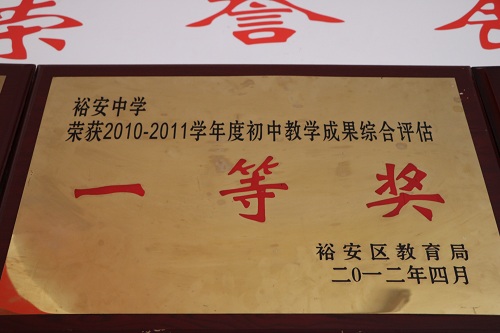 荣誉
裕安中学
荣获2010-2011学年度初中教学成果综合评估
一等奖
裕安区教育局
二〇一二年四月